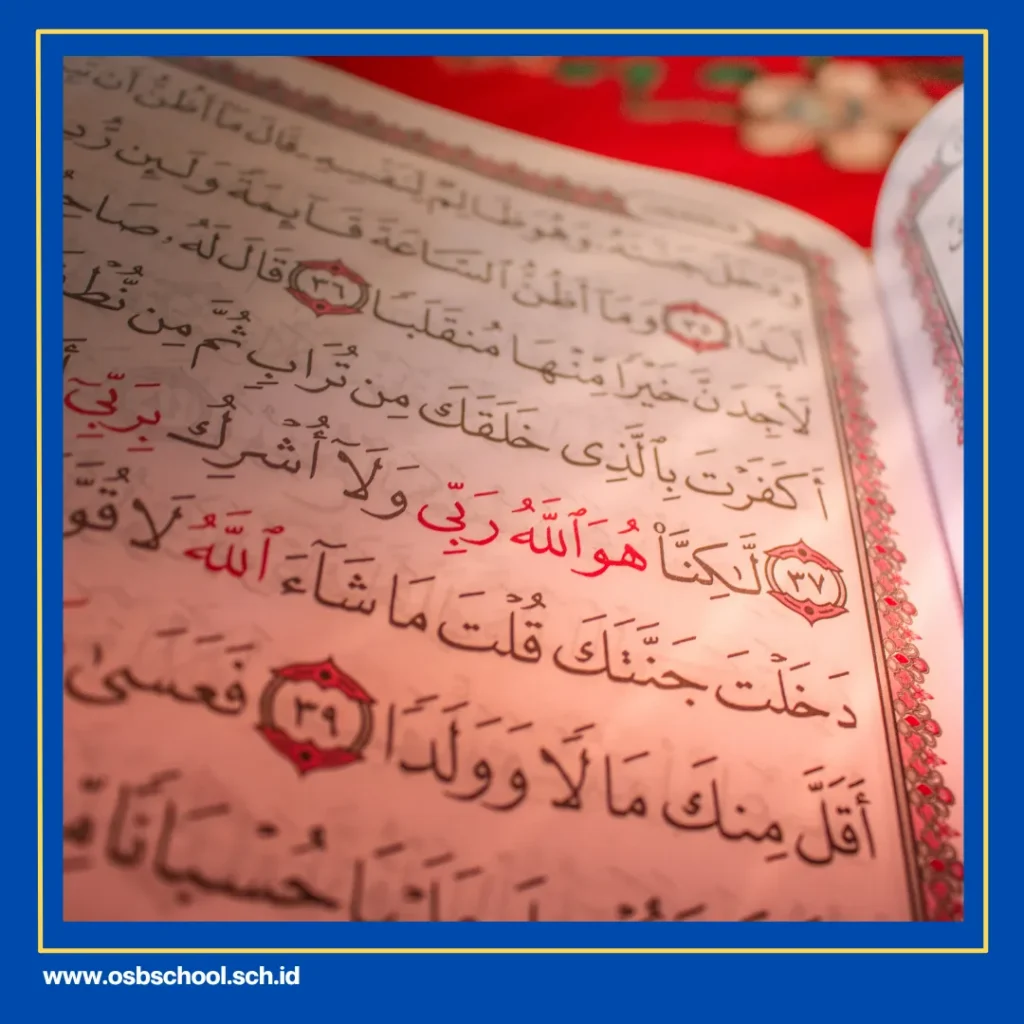 وَدَخَلَ جَنَّتَهُۥ وَهُوَ ظَالِمٌ لِّنَفْسِهِۦ قَالَ مَآ أَظُنُّ أَن
أَبَدًا ٣٥ وَمَآ أَظُنُّ ٱلسَّاعَةَ قَآئِمَةً وَلَئِن
لَأَجِدَنَّ خَيْرًا مِّنْهَا مُنقَلَبًا ٣٦ قَالَ لَهُۥ
أَكَفَرْتَ بِٱلَّذِى خَلَقَكَ مِن تُرَابٍ ثُمَّ مِن
٣٧ لَّٰكِنَّا۠ هُوَ ٱللَّهُ رَبِّى وَلَآ أُشْرِكُ بِرَبِّىٓ
دَخَلْتَ جَنَّتَكَ قُلْتَ مَا شَآءَ ٱللَّهُ لَا
أَقَلَّ مِنكَ مَالًا وَوَلَدًا ٣٩ فَعَسَىٰ
حُسْبَانًا
www.osbschool.sch.id